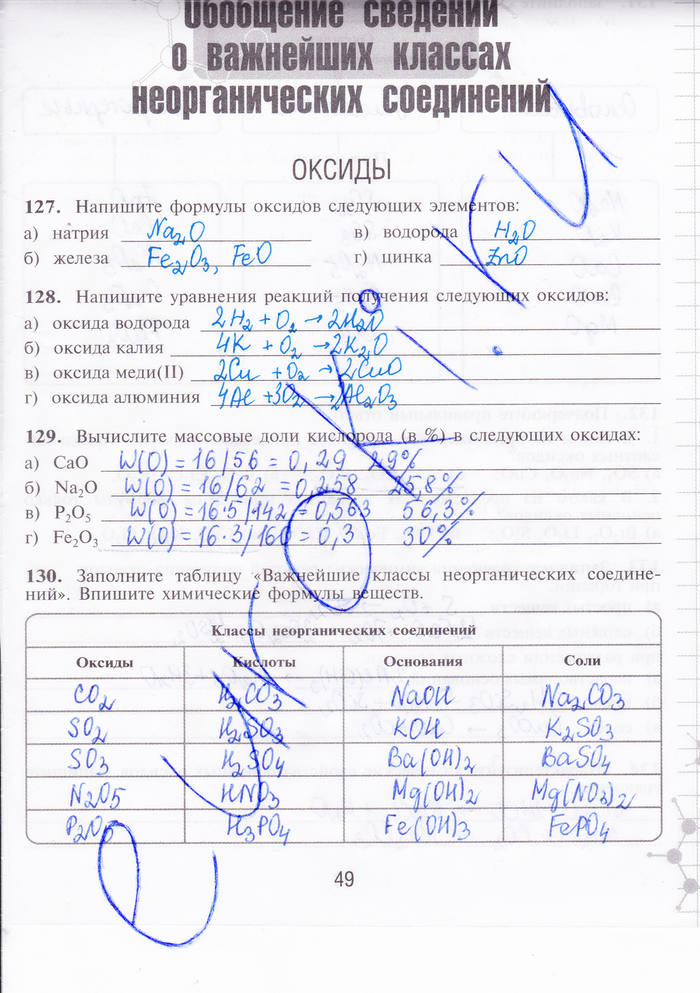 Обобщение сведений
о важнейших классах
неорганических соединений
ОКСИДЫ
127. Напишите формулы оксидов следующих элементов:
а) натрия Na₂O в) водорода H₂O
б) железа Fe₂O₃, FeO г) цинка ZnO
128. Напишите уравнения реакций получения следующих оксидов:
а) оксида водорода 2H₂ + O₂ → 2H₂O
б) оксида калия 4K + O₂ → 2K₂O
в) оксида меди(II) 2Cu + O₂ → 2CuO
г) оксида алюминия 4Al + 3O₂ → 2Al₂O₃
129. Вычислите массовые доли кислорода (в %) в следующих оксидах:
а) CaO W(O) = 16/56 = 0,29 29%
б) Na₂O W(O) = 16/62 = 0,258 25,8%
в) P₂O₅ W(O) = 16·5/142 = 0,563 56,3%
г) Fe₂O₃ W(O) = 16·3/160 = 0,3 30%
130. Заполните таблицу «Важнейшие классы неорганических соедине-
ний». Впишите химические формулы веществ.
Классы неорганических соединений
Оксиды Кислоты Основания Соли
CO₂ H₂CO₃ NaOH Na₂CO₃
SO₂ H₂SO₃ KOH K₂SO₃
SO₃ H₂SO₄ Ba(OH)₂ BaSO₄
N₂O5 HNO₃ Mg(OH)₂ Mg(NO₃)₂
P₂O₅ H₃PO₄ Fe(OH)₃ FePO₄
49